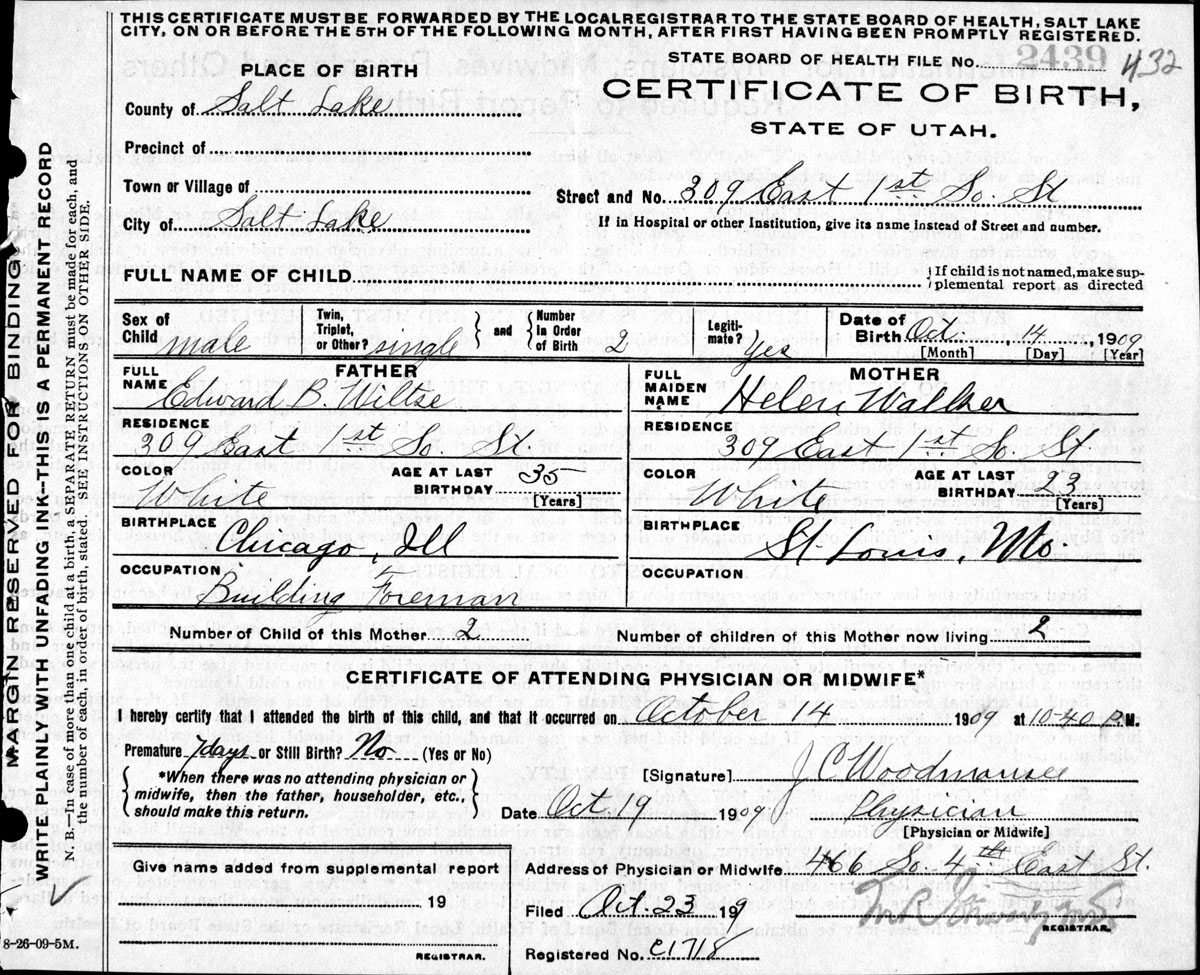 THIS CERTIFICATE MUST BE FORWARDED BY THE LOCAL REGISTRAR TO THE STATE BOARD OF HEALTH, SALT LAKE
CITY, ON OR BEFORE THE 5TH OF THE FOLLOWING MONTH, AFTER FIRST HAVING BEEN PROMPTLY REGISTERED.
STATE BOARD OF HEALTH FILE No. 2439 432
PLACE OF BIRTH
CERTIFICATE OF BIRTH,
STATE OF UTAH.
County of Salt Lake
Precinct of
Town or Village of
Street and No. 309 East 1st So. St
City of Salt Lake
If in Hospital or other institution, give its name instead of Street and number.
FULL NAME OF CHILD
If child is not named, make supplemental report as directed
Sex of Child male
Twin, Triplet, or Other? single
and
Number in Order of Birth 2
Legitimate? yes
Date of Birth Oct. 14, 1909
[Month] [Day] [Year]
FATHER
FULL NAME Edward B. Willse
RESIDENCE
309 East 1st So. St.
COLOR White
AGE AT LAST BIRTHDAY 35
[Years]
BIRTHPLACE
Chicago, Ill
OCCUPATION
Building Foreman
MOTHER
FULL MAIDEN NAME Helen Walker
RESIDENCE
309 East 1st So. St
COLOR White
AGE AT LAST BIRTHDAY 23
[Years]
BIRTHPLACE
St. Louis, Mo.
OCCUPATION
Number of Child of this Mother 2
Number of children of this Mother now living 2
CERTIFICATE OF ATTENDING PHYSICIAN OR MIDWIFE*
I hereby certify that I attended the birth of this child, and that it occurred on October 14 1909 at 10-40 P.M.
Premature 7days or Still Birth? No (Yes or No)
*When there was no attending physician or
midwife, then the father, householder, etc.,
should make this return.
[Signature] J C Woodmansee
Date Oct 19 1909
Physician
[Physician or Midwife]
Give name added from supplemental report
19
REGISTRAR.
Address of Physician or Midwife 466 So. 4th East St.
Filed Oct. 23 190
REGISTRAR.
Registered No. C1718
8-26-09-5M.
MARGIN RESERVED FOR BINDING
WRITE PLAINLY WITH UNFADING INK--THIS IS A PERMANENT RECORD
N. B.—In case of more than one child at a birth, a SEPARATE RETURN must be made for each, and
the number of each, in order of birth, stated. SEE INSTRUCTIONS ON OTHER SIDE.